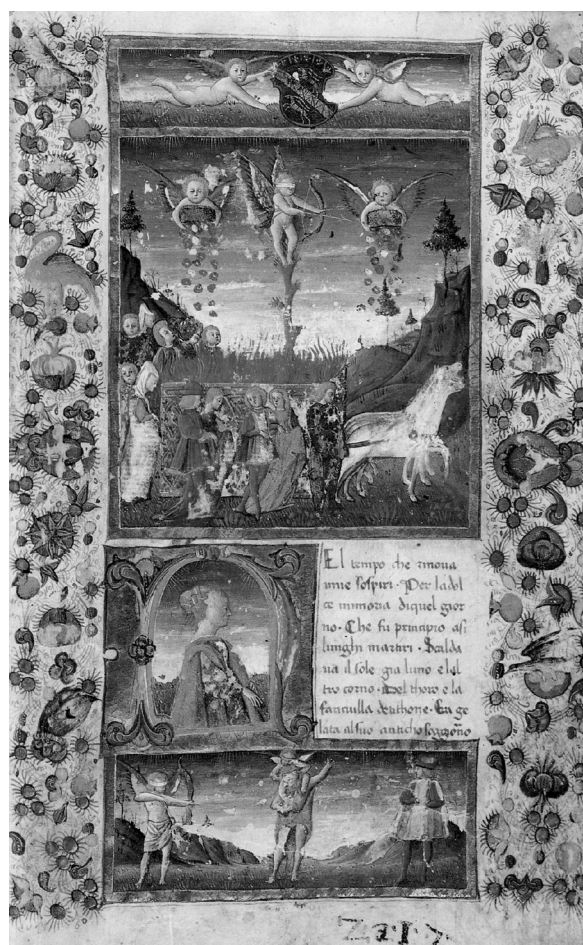 El tempo che rinova
imie sospiri · Per ladol
ce mimoria diquel gior
no · Che fu principio asi
lunghi martiri · Scalda
va il sole gia luno e lal
tro corno · Del thoro e la
fanciulla detithone · En ge
lata alsuo anticho soggorno